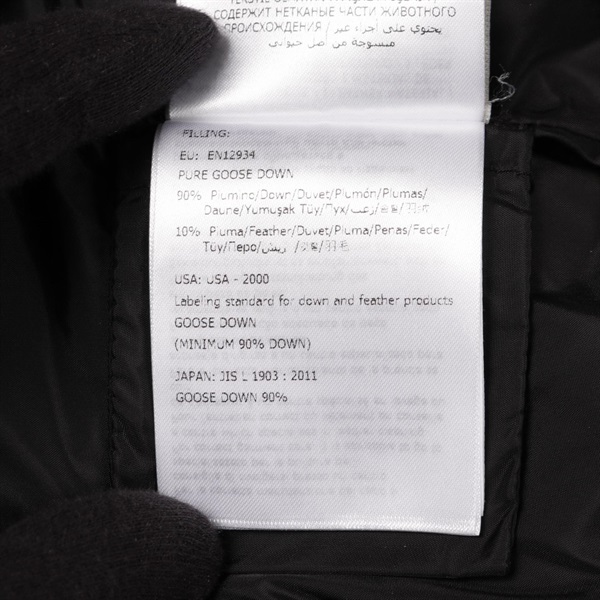 СОДЕРЖИТ НЕТКАНЫЕ ЧАСТИ ЖИВОТНОГО
ПРОИСХОЖДЕНИЯ / يحتوي على أجزاء غير
منسوجة من أصل حيواني
FILLING:
EU: EN12934
PURE GOOSE DOWN
90% Piumino/Down/Duvet/Plumón/Plumas/
Daune/Yumuşak Tüy/Пух/زغب/
10% Piuma/Feather/Duvet/Pluma/Penas/Feder/
Tüy/Перо/ريش/
USA: USA - 2000
Labeling standard for down and feather products
GOOSE DOWN
(MINIMUM 90% DOWN)
JAPAN: JIS L 1903 : 2011
GOOSE DOWN 90%